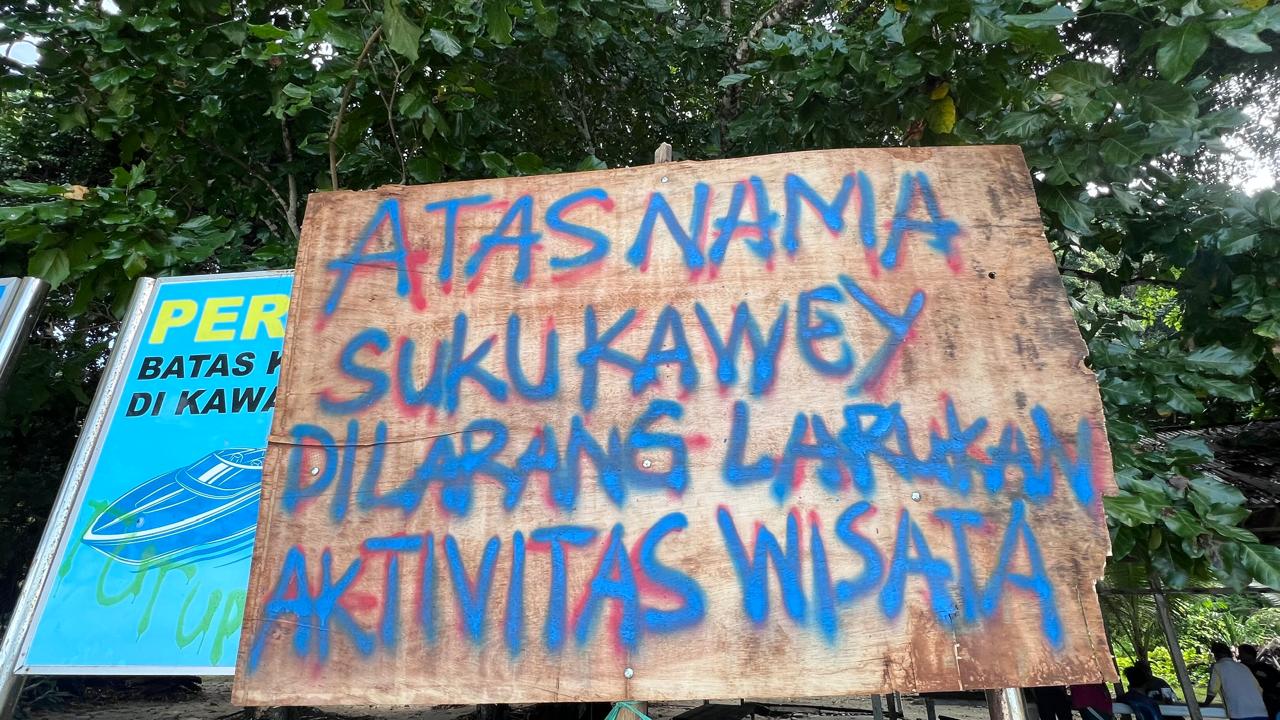 ATAS NAMA
SUKU KAWEY
DILARANG LARUKAN
AKTIVITAS WISATA
PER
BATAS K
DI KAWA
Tutup